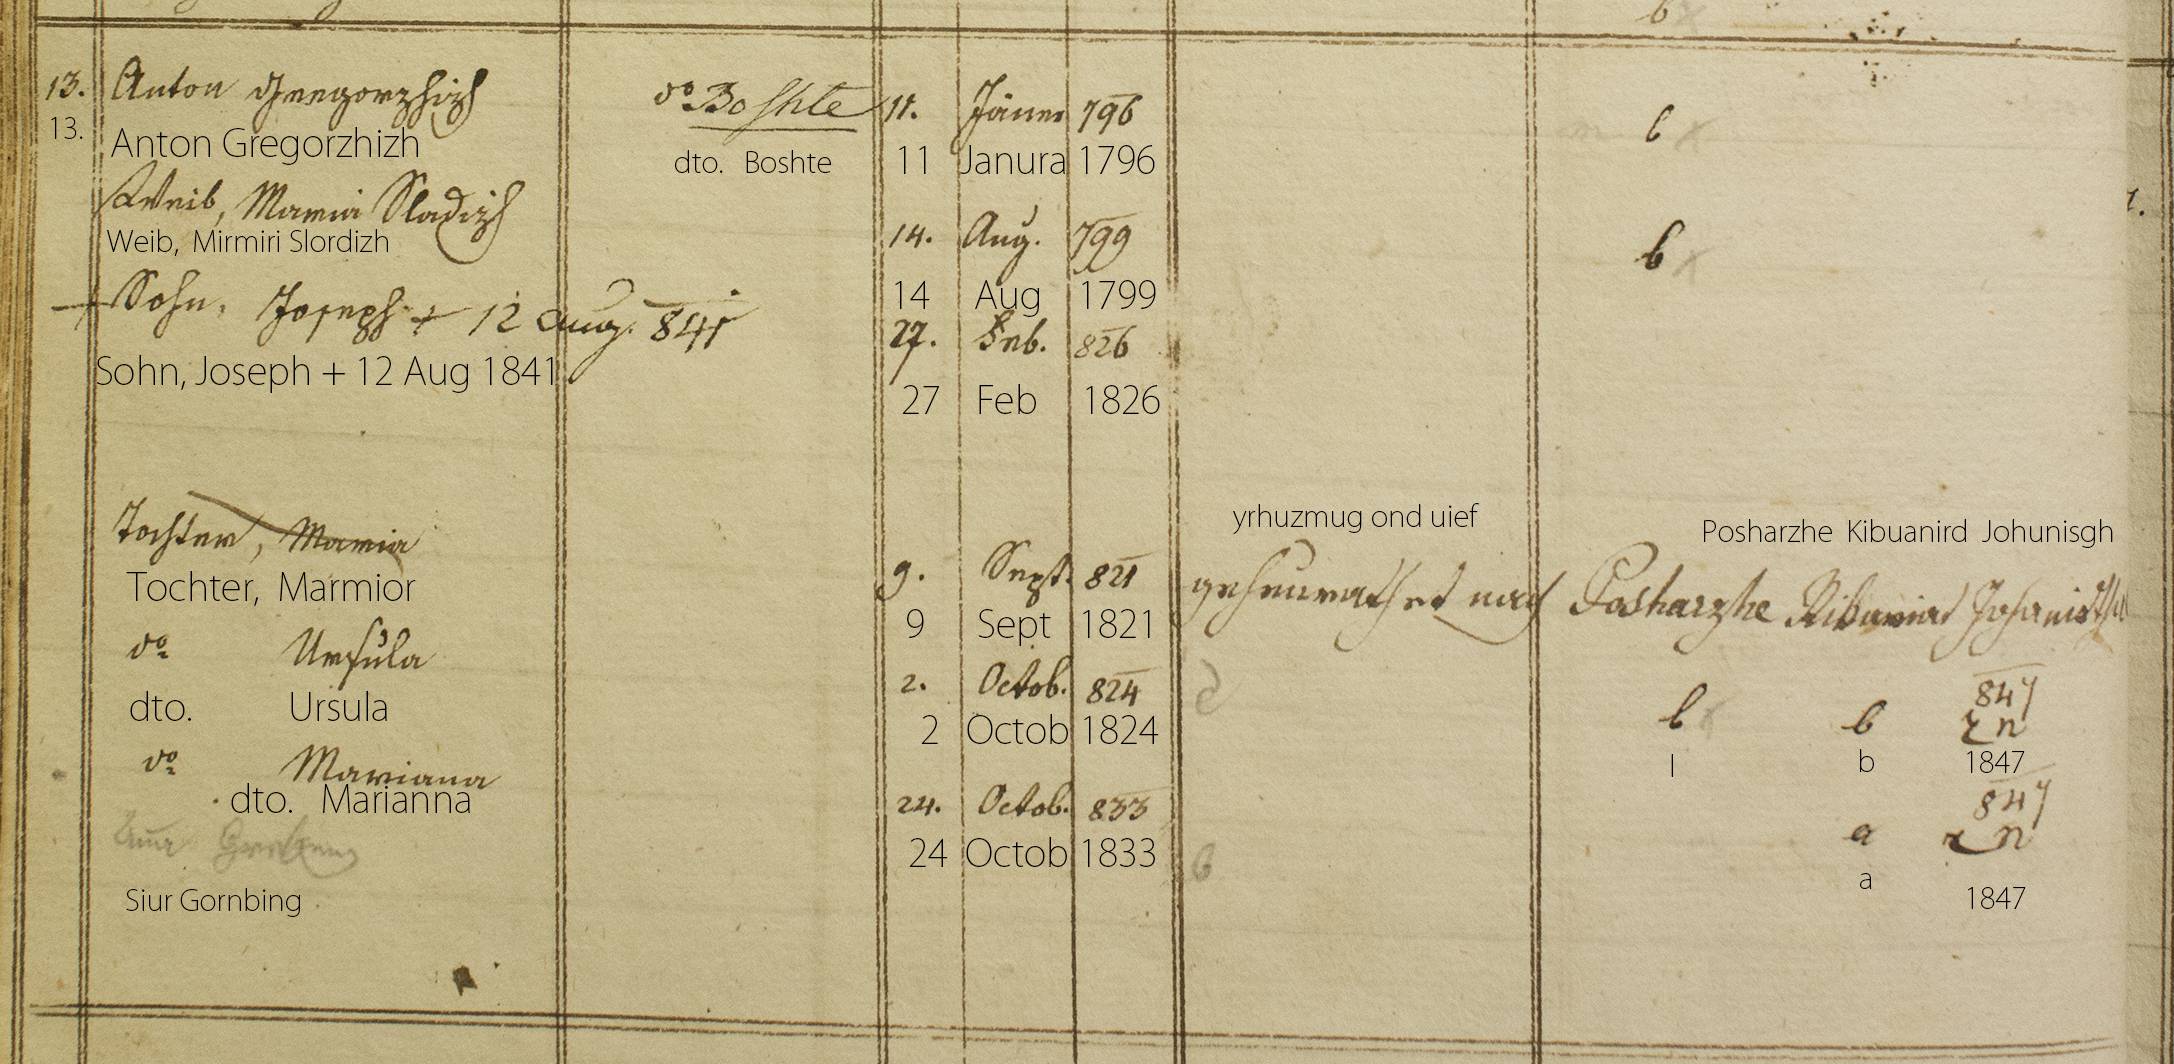 13. Anton Gregorzhizh do Boshte 11. Jäner 796
13. Anton Gregorzhizh dto. Boshte 11 Janura 1796
Weib, Maria Sladizh 14. Aug. 799 b
Weib, Mirmiri Slordizh 14 Aug 1799
Sohn, Joseph + 12 Aug. 841 27. Feb. 826
Sohn, Joseph + 12 Aug 1841 27 Feb 1826
yrhuzmug ond uief Posharzhe Kibuanird Johunisgh
Tochter, Maria 9. Sept. 821 geheurathet nach Posharzhe
Tochter, Marmior 9 Sept 1821
do Ursula 2. Octob. 824 b b 847
dto. Ursula 2 Octob 1824 l b 1847
do Mariana 24. Octob. 833 a 847
dto. Marianna 24 Octob 1833 a 1847
Siur Gornbing